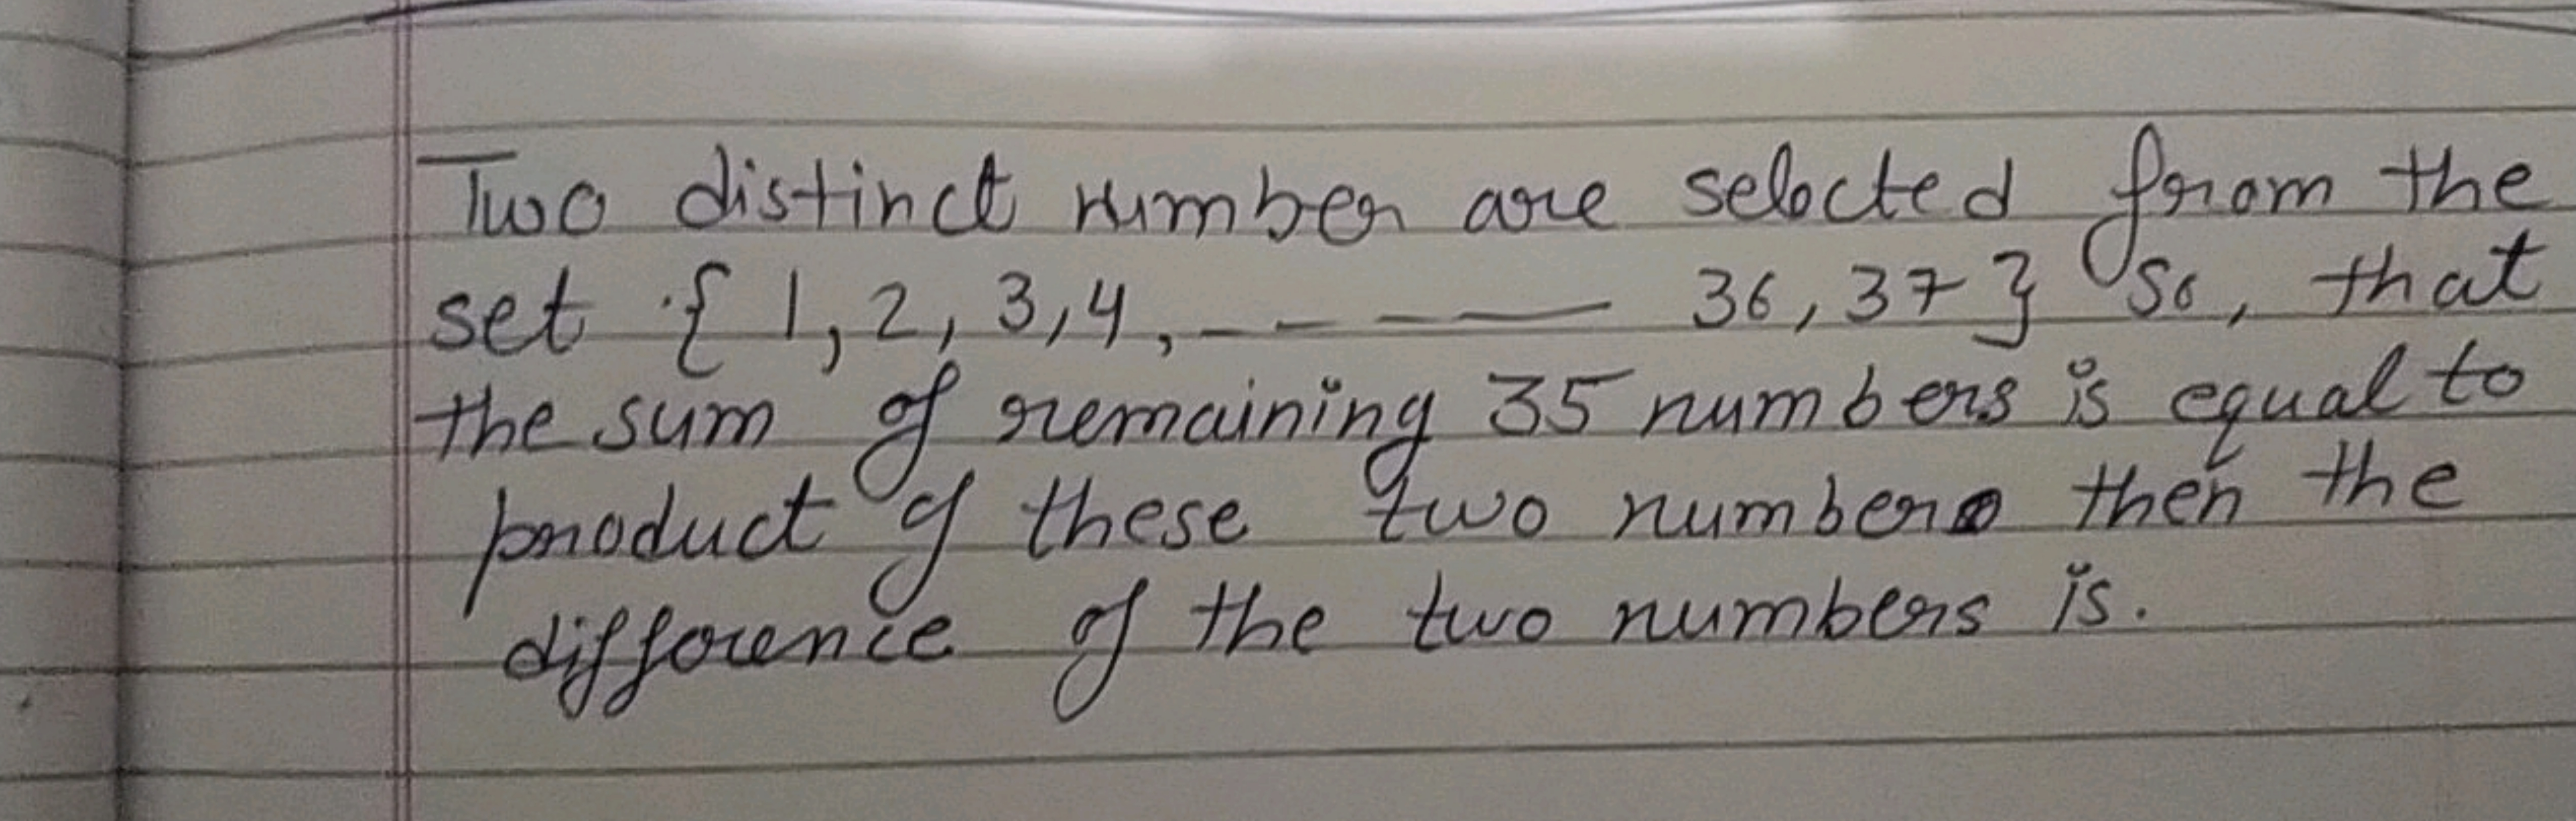 Two distinct number are selected from the
set { 1, 2, 3, 4, - - - — 36, 37 } so, that
the sum of remaining 35 numbers is equal to
product of these two numbers then the
difference of the two numbers is.